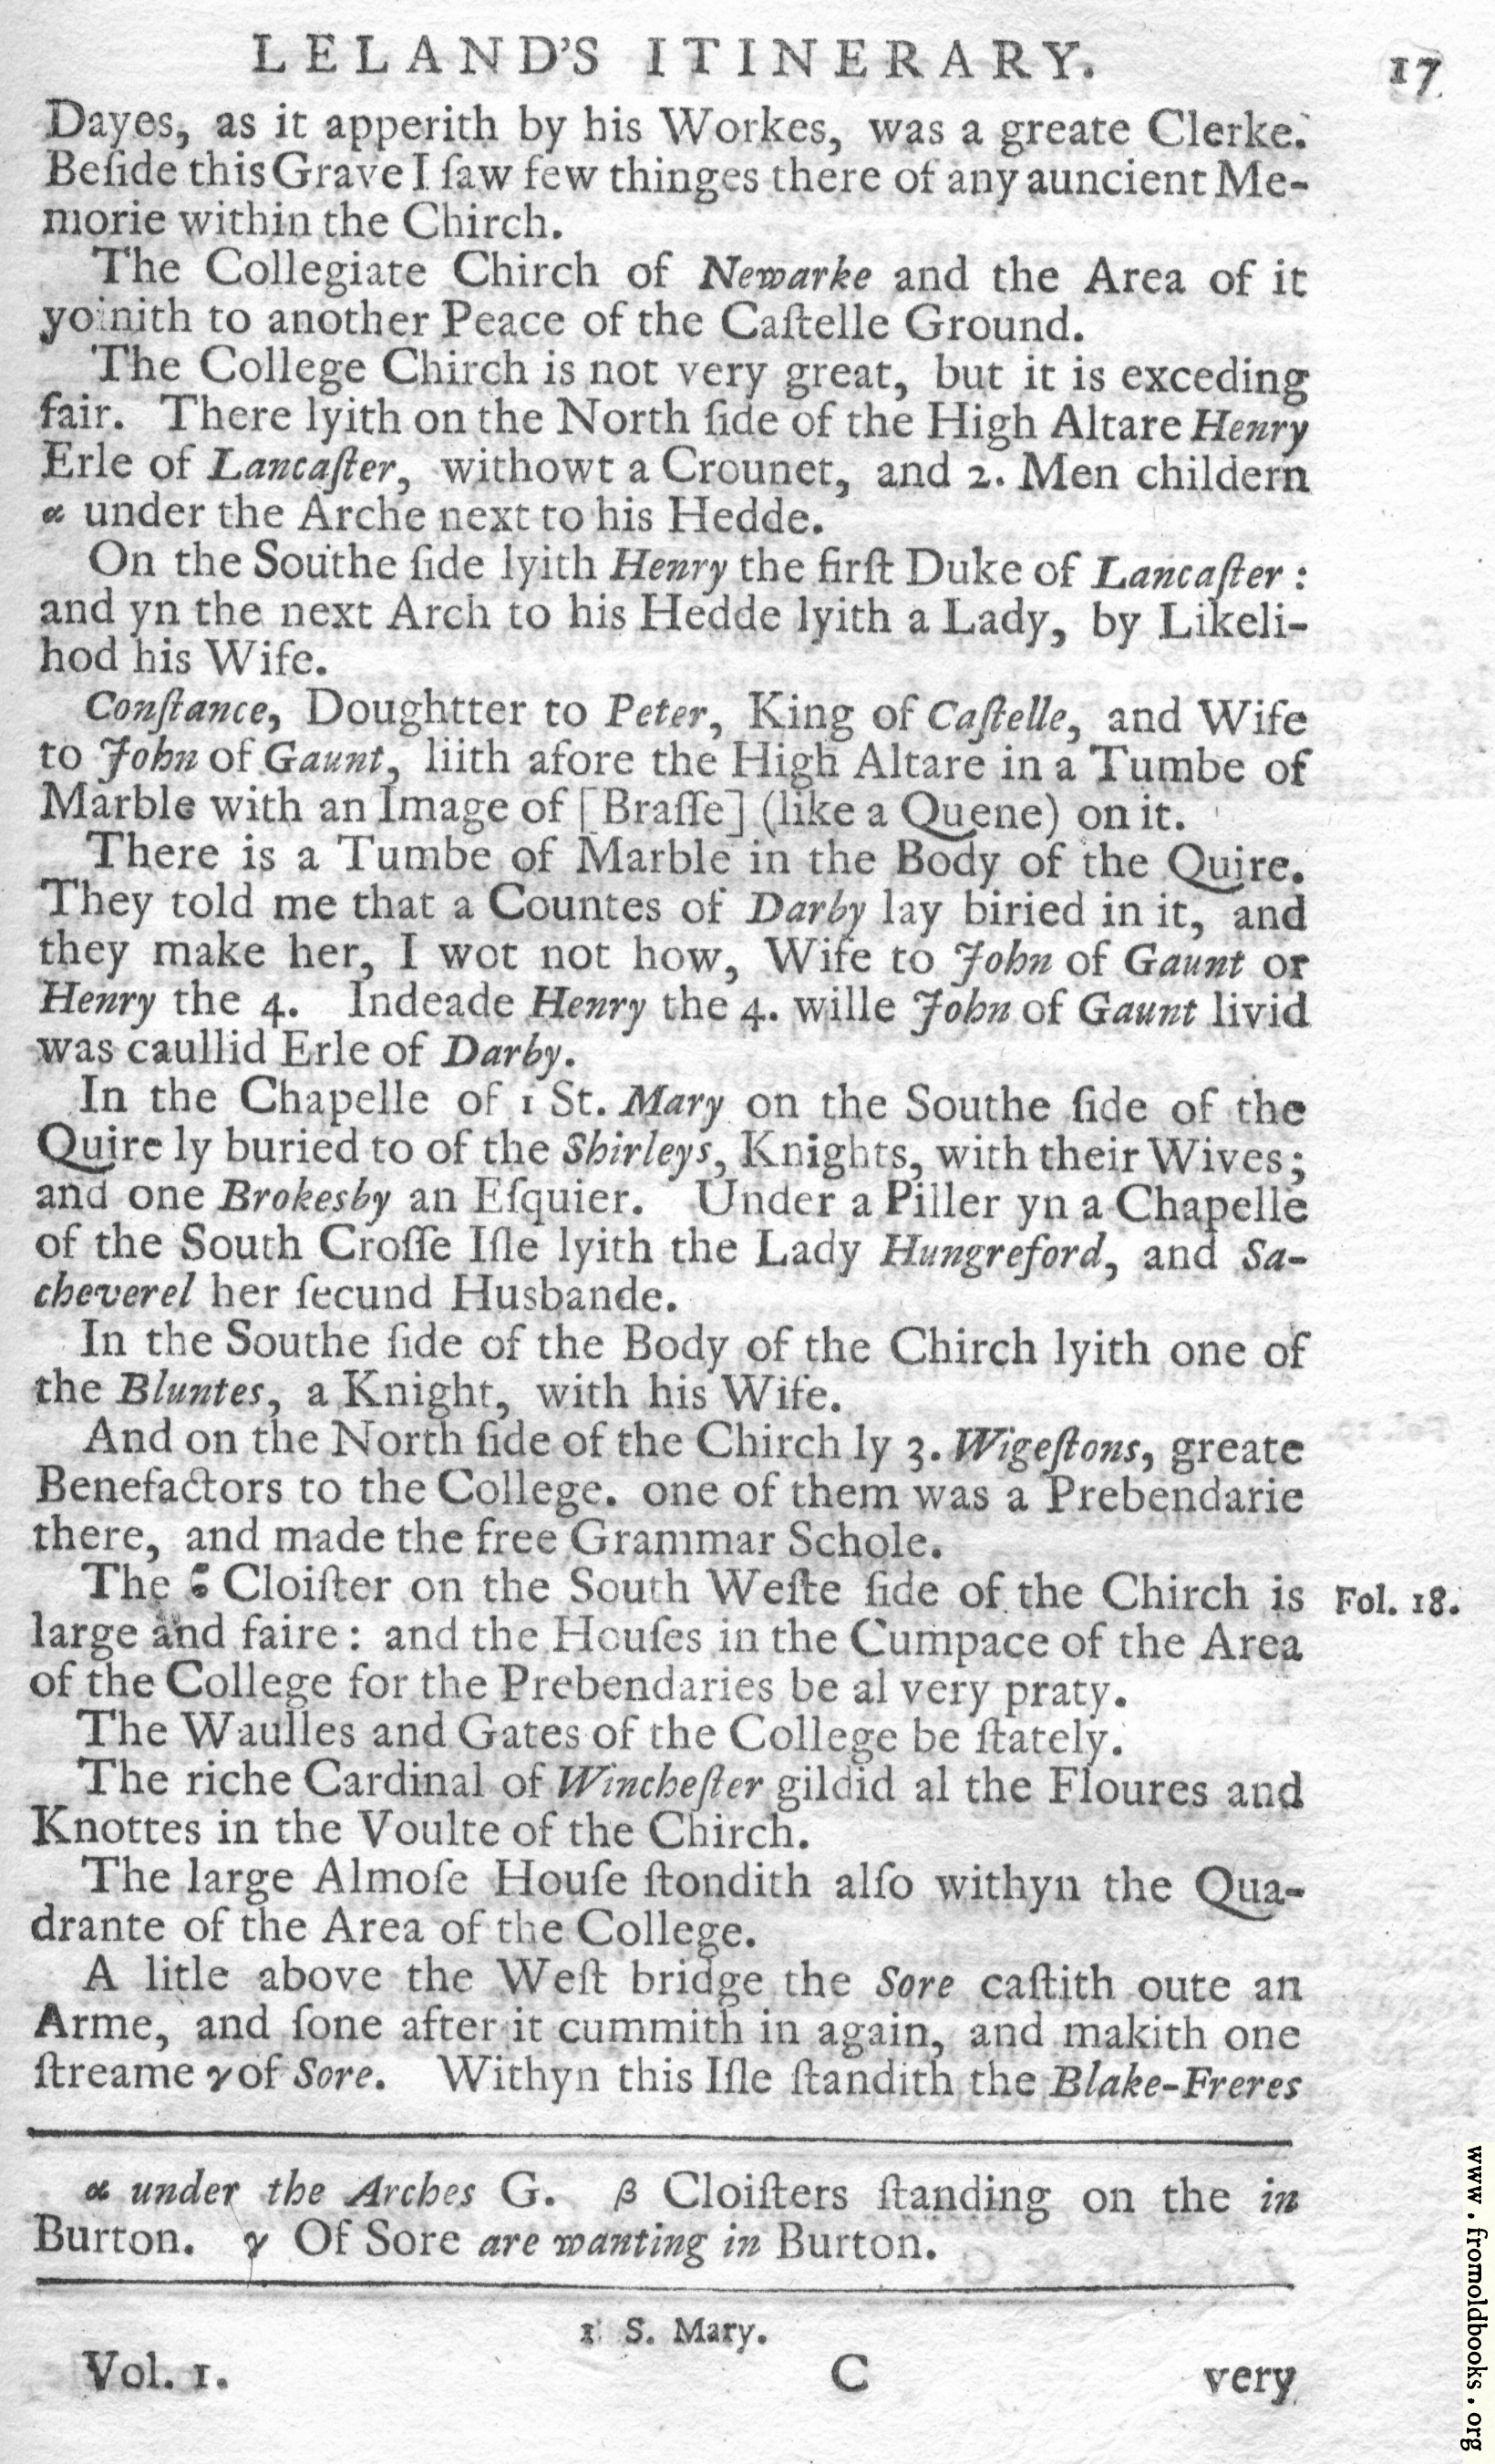 LELAND'S ITINERARY. 17
Dayes, as it apperith by his Workes, was a greate Clerke.
Beſide this Grave I ſaw few thinges there of any auncient Me-
morie within the Chirch.
The Collegiate Chirch of Newarke and the Area of it
yoinith to another Peace of the Caſtelle Ground.
The College Chirch is not very great, but it is exceding
fair. There lyith on the North ſide of the High Altare Henry
Erle of Lancaſter, withowt a Crounet, and 2. Men childern
α under the Arche next to his Hedde.
On the Southe ſide lyith Henry the firſt Duke of Lancaſter :
and yn the next Arch to his Hedde lyith a Lady, by Likeli-
hod his Wife.
Conſtance, Doughtter to Peter, King of Caſtelle, and Wife
to John of Gaunt, liith afore the High Altare in a Tumbe of
Marble with an Image of [Braſſe] (like a Quene) on it.
There is a Tumbe of Marble in the Body of the Quire.
They told me that a Countes of Darby lay biried in it, and
they make her, I wot not how, Wife to John of Gaunt or
Henry the 4. Indeade Henry the 4. wille John of Gaunt livid
was caullid Erle of Darby.
In the Chapelle of 1 St. Mary on the Southe ſide of the
Quire ly buried to of the Shirleys, Knights, with their Wives;
and one Brokesby an Eſquier. Under a Piller yn a Chapelle
of the South Croſſe Iſle lyith the Lady Hungreford, and Sa-
cheverel her ſecund Husbande.
In the Southe ſide of the Body of the Chirch lyith one of
the Bluntes, a Knight, with his Wife.
And on the North ſide of the Chirch ly 3. Wigeſtons, greate
Benefactors to the College. one of them was a Prebendarie
there, and made the free Grammar Schole.
The Cloiſter on the South Weſte ſide of the Chirch is Fol. 18.
large and faire : and the Houſes in the Cumpace of the Area
of the College for the Prebendaries be al very praty.
The Waulles and Gates of the College be ſtately.
The riche Cardinal of Wincheſter gildid al the Floures and
Knottes in the Voulte of the Chirch.
The large Almoſe Houſe ſtondith alſo withyn the Qua-
drante of the Area of the College.
A litle above the Weſt bridge the Sore caſtith oute an
Arme, and ſone after it cummith in again, and makith one
ſtreame γ of Sore. Withyn this Iſle ſtandith the Blake-Freres
α under the Arches G. β Cloiſters ſtanding on the in
Burton. γ Of Sore are wanting in Burton.
1 S. Mary.
Vol. 1. C very
www.fromoldbooks.org